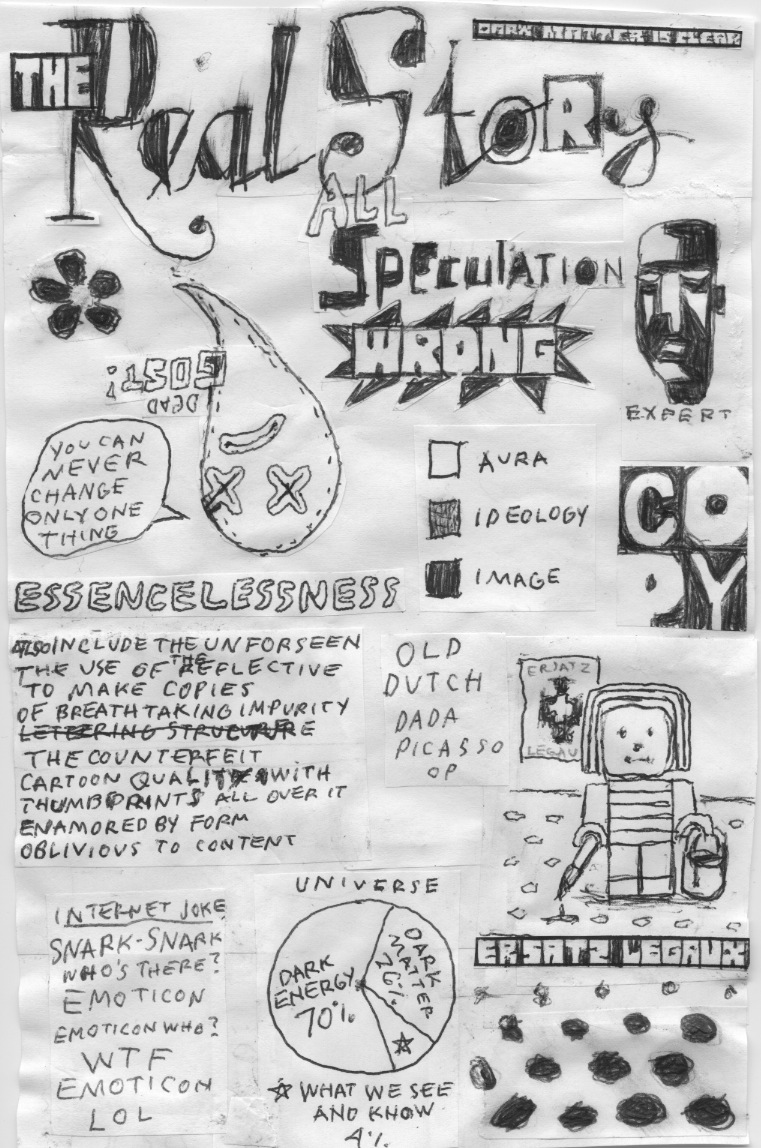 DARK MATTER IS CLEAR
THE
Real Story
ALL
SPECULATION
WRONG
EXPERT
GOST!
DEAD
YOU CAN
NEVER
CHANGE
ONLY ONE
THING
AURA
IDEOLOGY
IMAGE
CO
PY
ESSENCELESSNESS
ALSO INCLUDE THE UNFORSEEN
THE USE OF THE REFLECTIVE
TO MAKE COPIES
OF BREATHTAKING IMPURITY
LETTERING STRUCUTURE
THE COUNTERFEIT
CARTOON QUALITY WITH
THUMBPRINTS ALL OVER IT
ENAMORED BY FORM
OBLIVIOUS TO CONTENT
OLD
DUTCH
DADA
PICASSO
OP
ERSATZ
LEGAU
ERSATZ LEGAUX
INTERNET JOKE
SNARK-SNARK
WHO'S THERE?
EMOTICON
EMOTICON WHO?
WTF
EMOTICON
LOL
UNIVERSE
DARK
ENERGY
70%
DARK
MATTER
26%
☆
☆ WHAT WE SEE
AND KNOW
4%